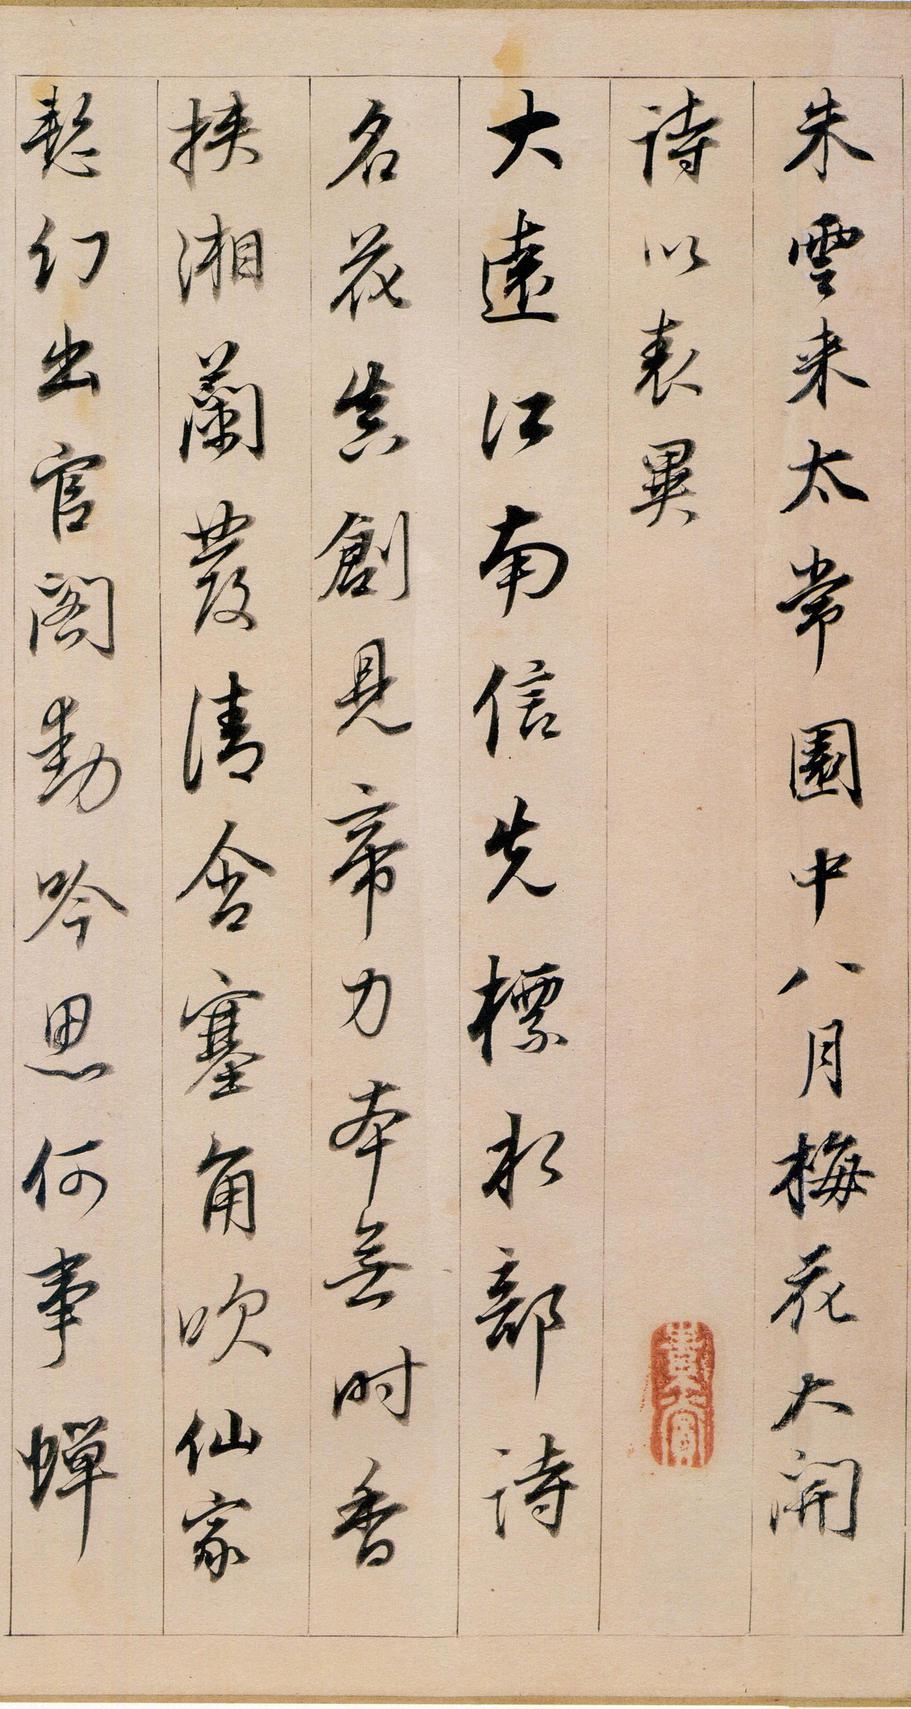 朱雲来太常園中八月梅花大開
詩以表異
大遠江南信先標水部詩
名花真創見帝力本無時香
挟湘蘭發清含塞角吹仙家
慙幻出官阁動吟思何事蟬